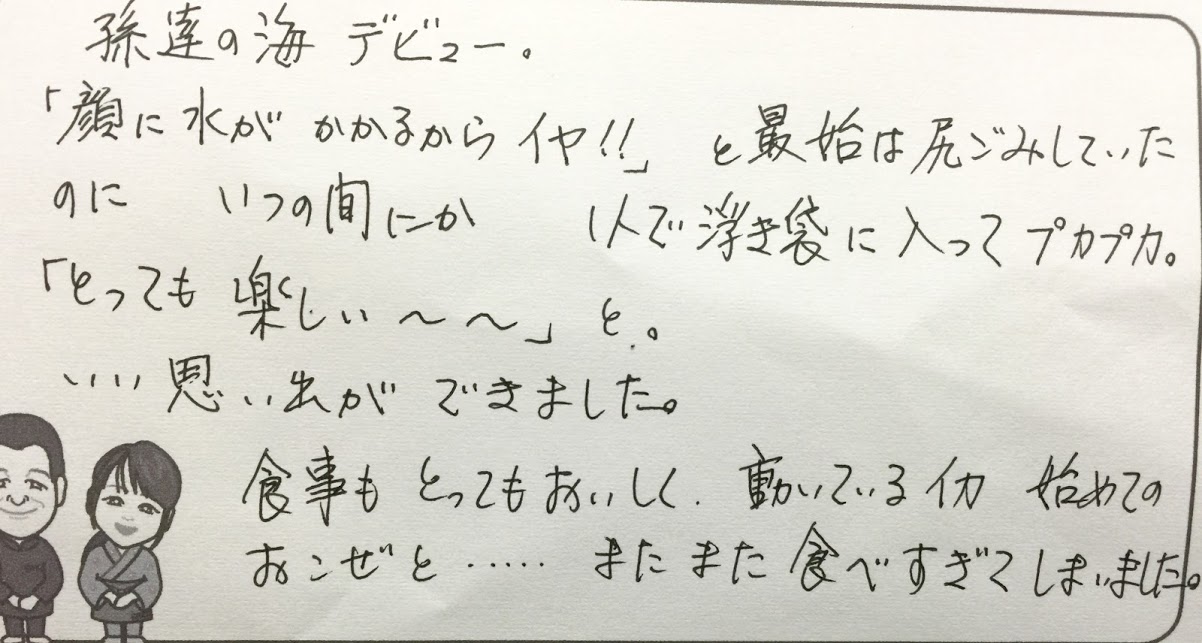 孫達の海 デビュー。
「顔に水が かかるから イヤ!!」 と最始は尻ごみしていた
のに いつの間にか 1人で浮き袋に入ってプカプカ。
「とっても 楽しい～～」と。
いい思い出が できました。
食事も とってもおいしく、動いているイカ 始めての
おこぜと‥‥‥ またまた食べすぎてしまいました。